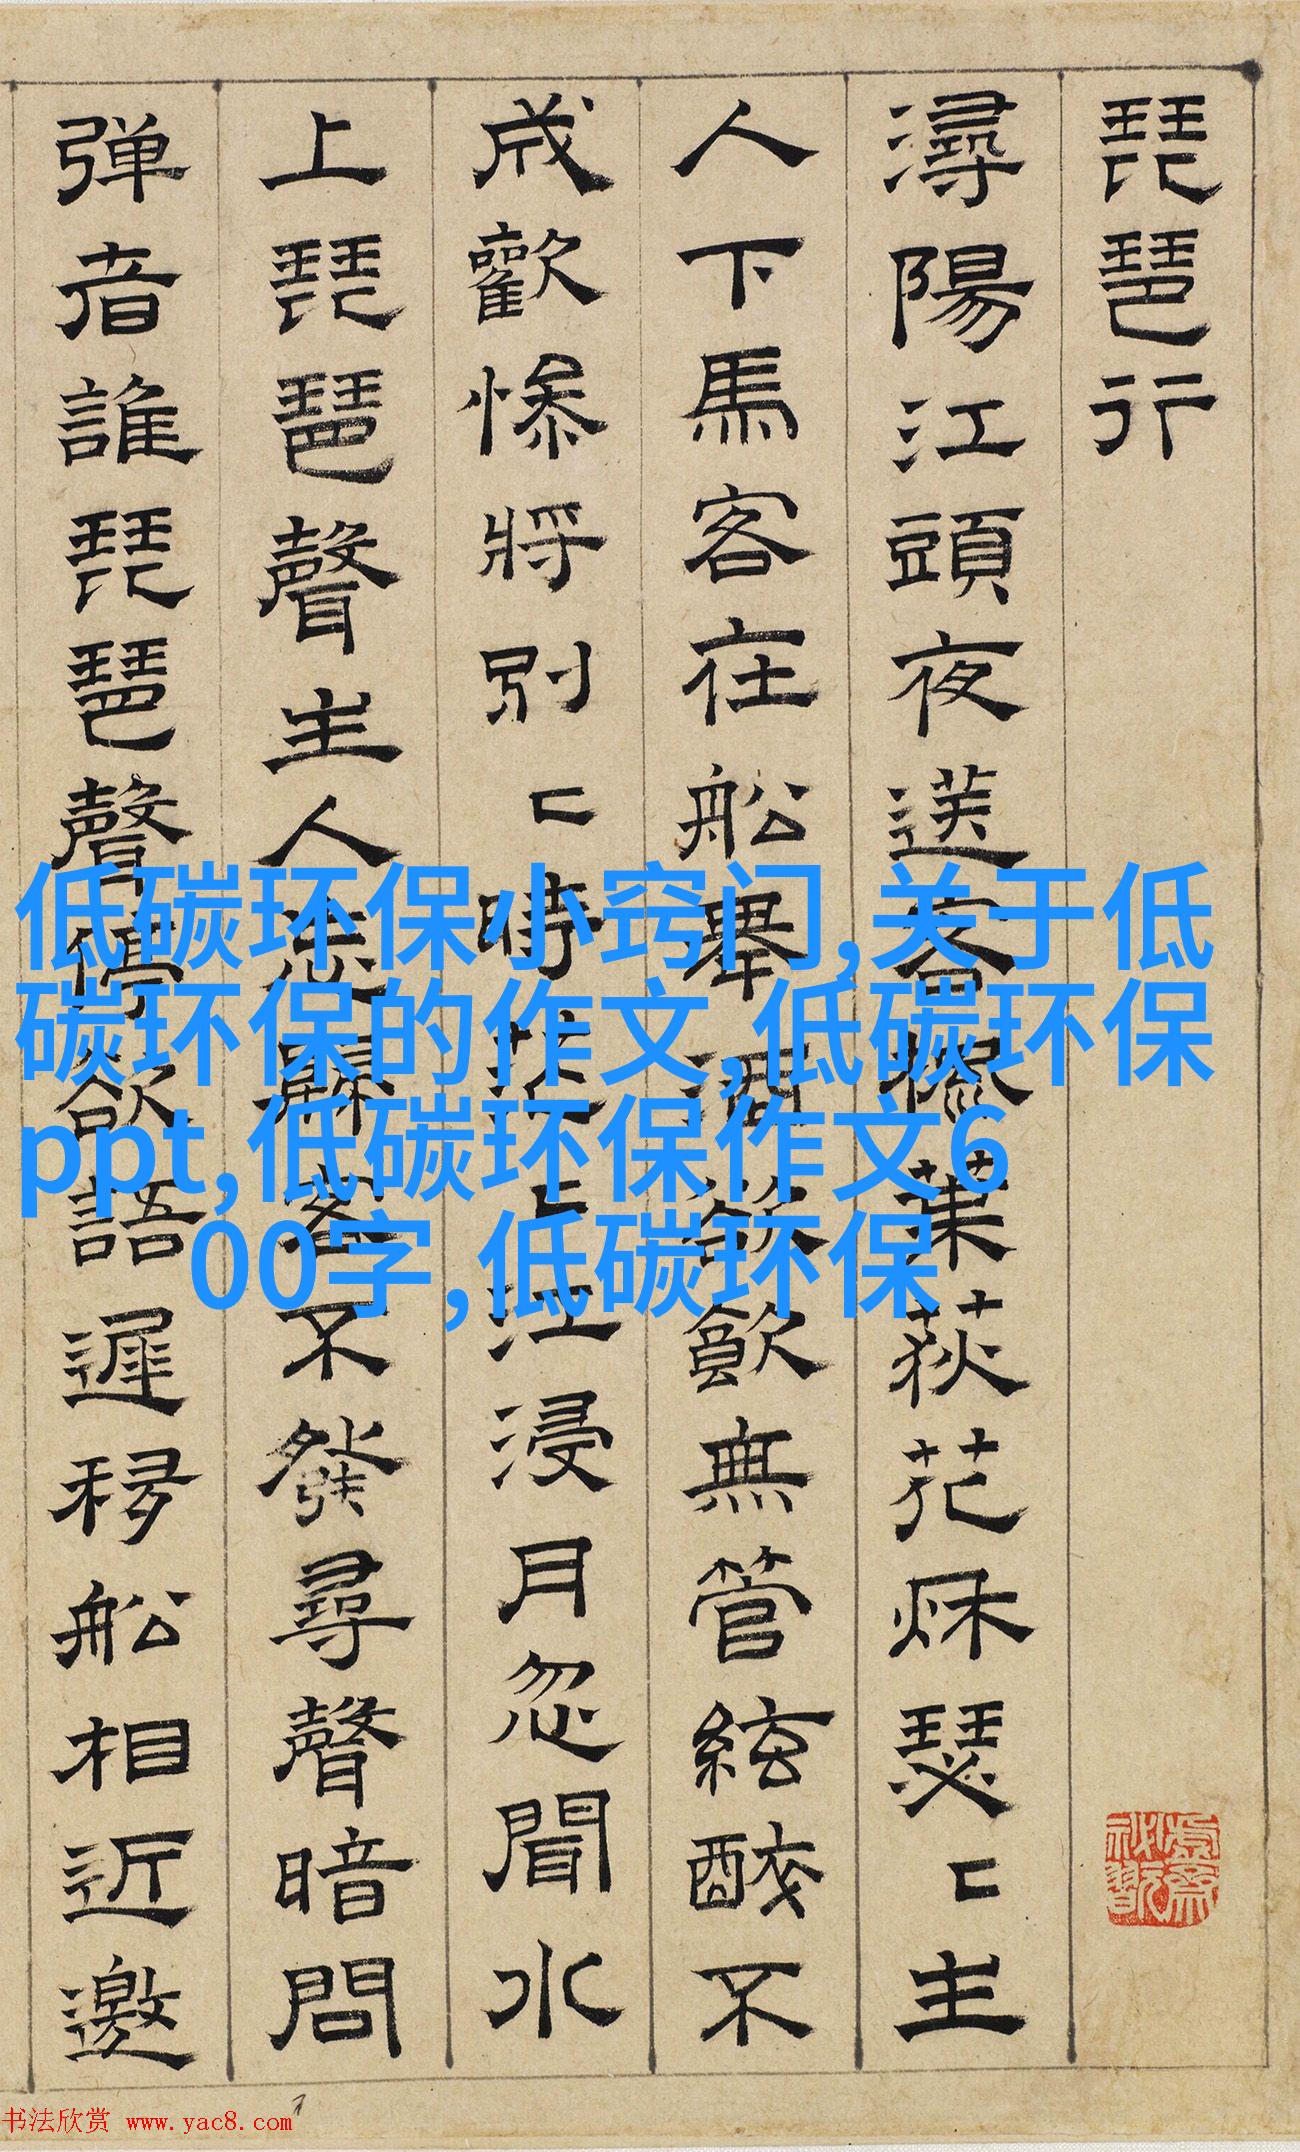 琵琶行
潯陽江頭夜送客楓葉荻花秌瑟〻主
人下馬客在船舉酒欲飲無管絃醉不
成歡慘將別〻時茫〻江浸月忽聞水
上琵琶聲主人忘歸客不發尋聲暗問
弹者誰琵琶聲停欲語遲移船相近邀
低碳环保小窍门,关于低
碳环保的作文,低碳环保
ppt,低碳环保作文6
00字,低碳环保
书法欣赏 www.yac8.com